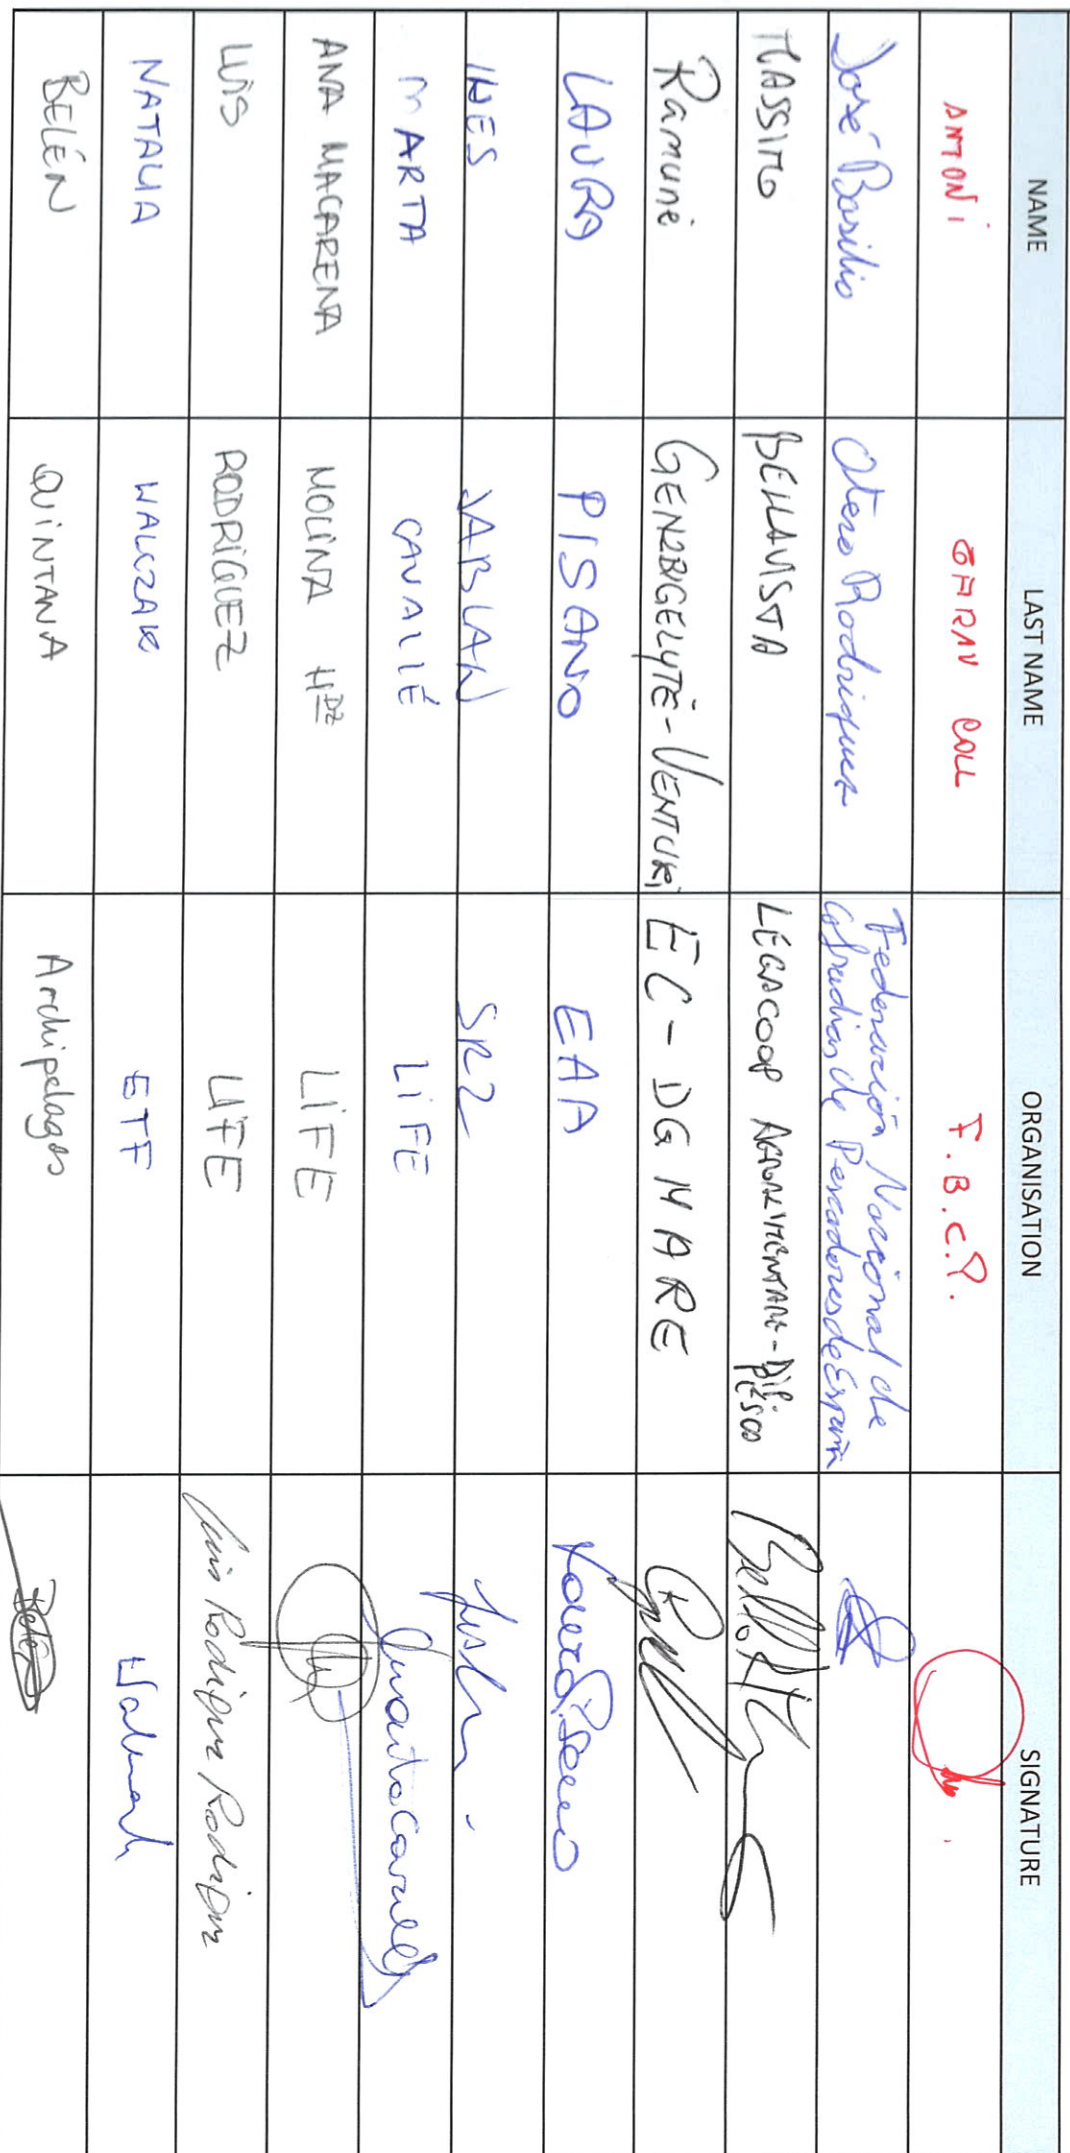 NAME LAST NAME ORGANISATION SIGNATURE
ANTONI GARAU COLL F.B.C.P.
José Basilio Otero Rodriguez Federación Nacional de
Cofradias de Pescadores de España
MASSIMO BELLAVISTA LEGACOOP AGROALIMENTARE - DIP.
PESCA
Ramunė GENZBIGELYTĖ-VENTURI EC - DG MARE
LAURA PISANO EAA Laura Pisano
INES JABLAN SRZ
MARTA CAVALLÉ LIFE Marta Cavallé
ANA MACARENA MOLINA HDZ LIFE
LUIS RODRIGUEZ LIFE Luis Rodriguez Rodriguez
NATALIA WALCZAK ETF Walczak
BELÉN QUINTANA Archipelagos Belén